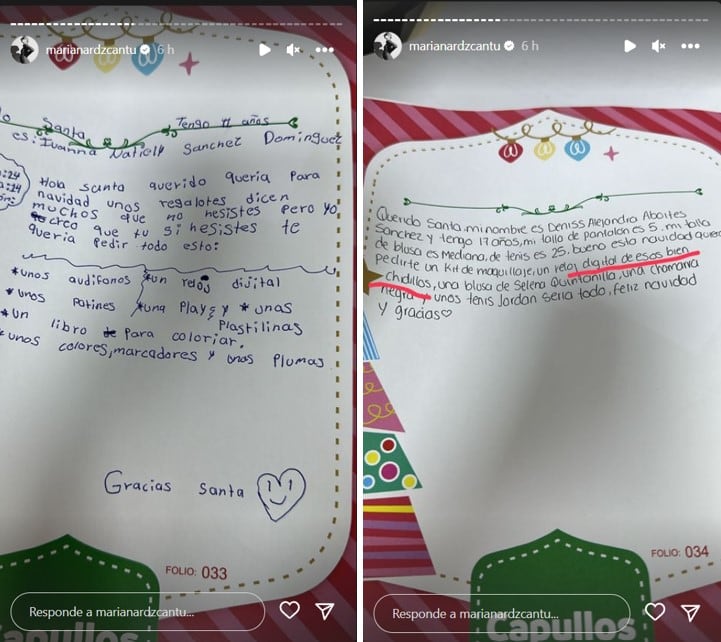 marianardzcantu 6 h
Santa Tengo 11 años
es: Ivanna Natielly Sanchez Dominguez
Hola santa querido queria para
navidad unos regalotes dicen
muchos que no hesistes pero yo
creo que tu si hesistes te
queria pedir todo esto:
*unos audifonos *un reloj dijital
*unos Patines *una Play5 y *unas
Plastilinas
*un libro para coloriar.
*unos colores, marcadores y unas Plumas
Gracias Santa
FOLIO: 033
Responde a marianardzcantu...
apullos
marianardzcantu 6 h
Querido Santa mi nombre es Deniss Alejandra Aboites
Sanchez y tengo 17 años, mi talla de pantalon es 5. mi talla
de blusa es Mediana, de tenis es 25. bueno esta navidad
pedirte un Kit de maquillaje, un reloj digital de esos bien
chidillos, una blusa de Selena Quintanilla, una chamarra
negra y unos tenis Jordan seria todo, feliz navidad
y gracias♡
FOLIO: 034
Responde a marianardzcantu...
Capullos